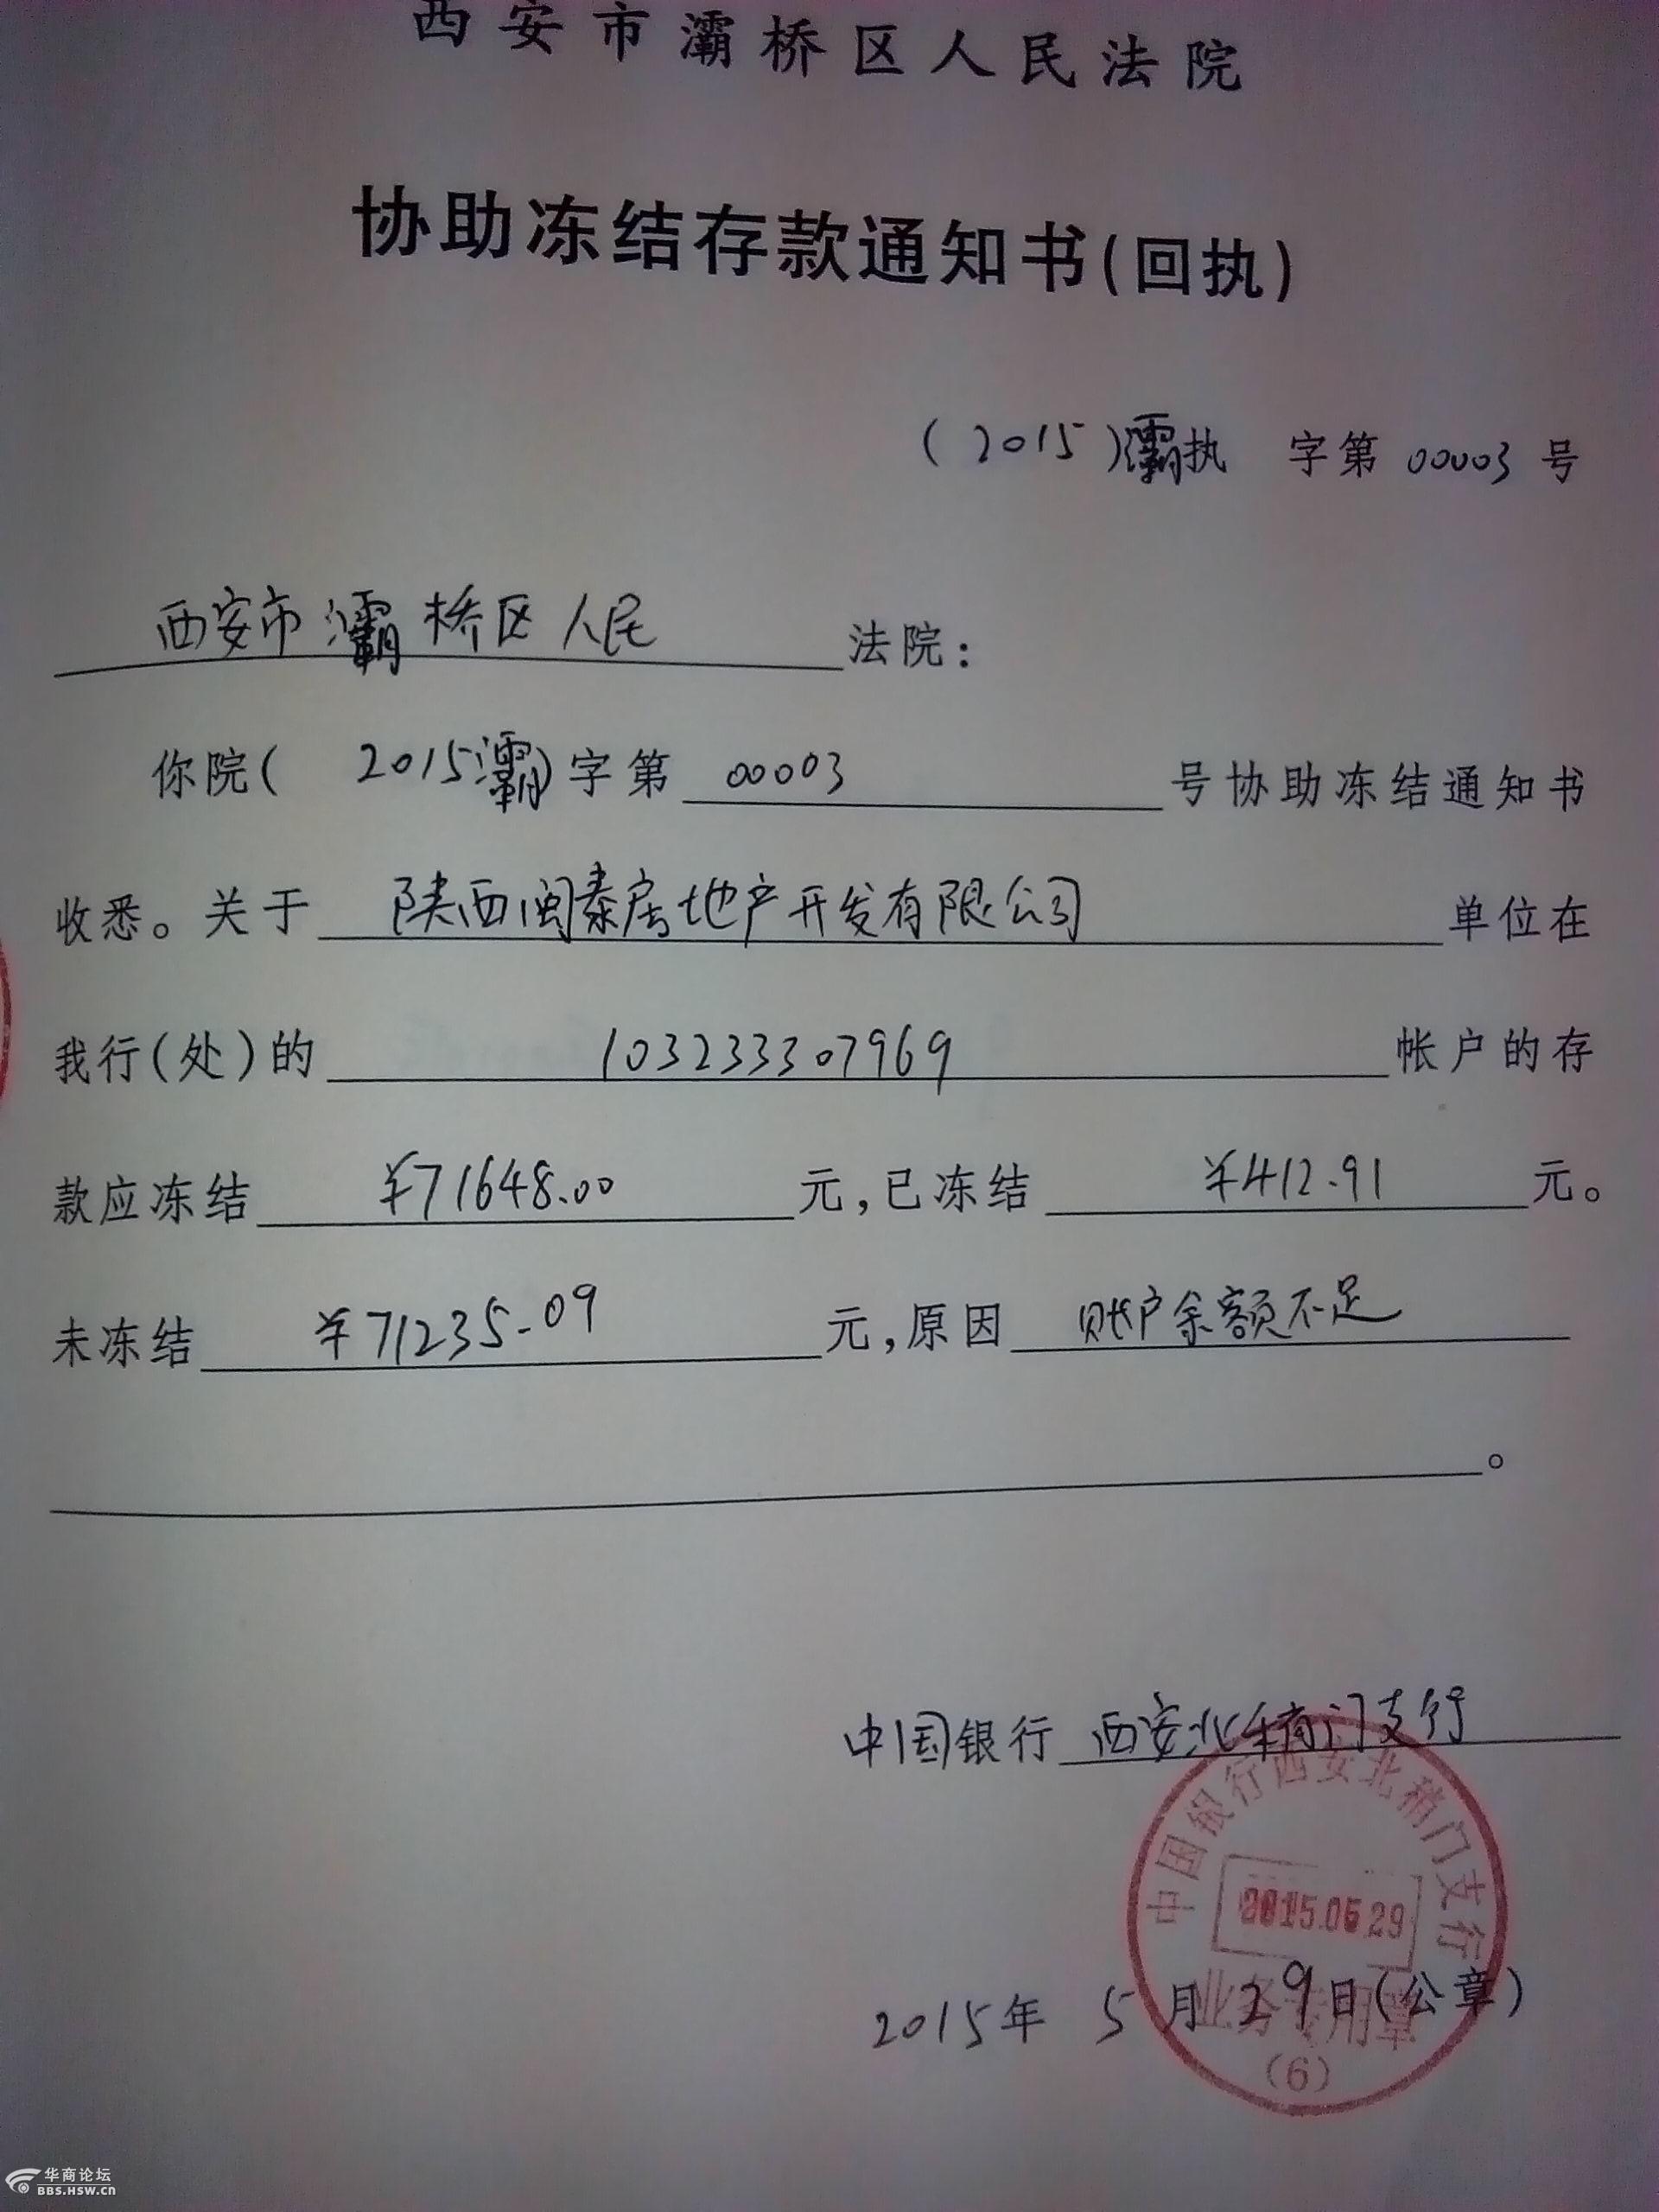 西安市灞桥区人民法院
协助冻结存款通知书(回执)
(2015)灞执 字第 00003 号
西安市灞桥区人民法院:
你院( 2015灞)字第 00003 号协助冻结通知书
收悉。关于 陕西闽泰房地产开发有限公司 单位在
我行(处)的 103233307969 帐户的存
款应冻结 ¥71648.00 元,已冻结 ¥412.91 元。
未冻结 ¥71235.09 元,原因 账户余额不足
。
中国银行 西安北稍门支行
中国银行西安北稍门支行
2015.05.29
业务专用章
(6)
2015年 5 月 29日(公章)
华商论坛
BBS.HSW.CN